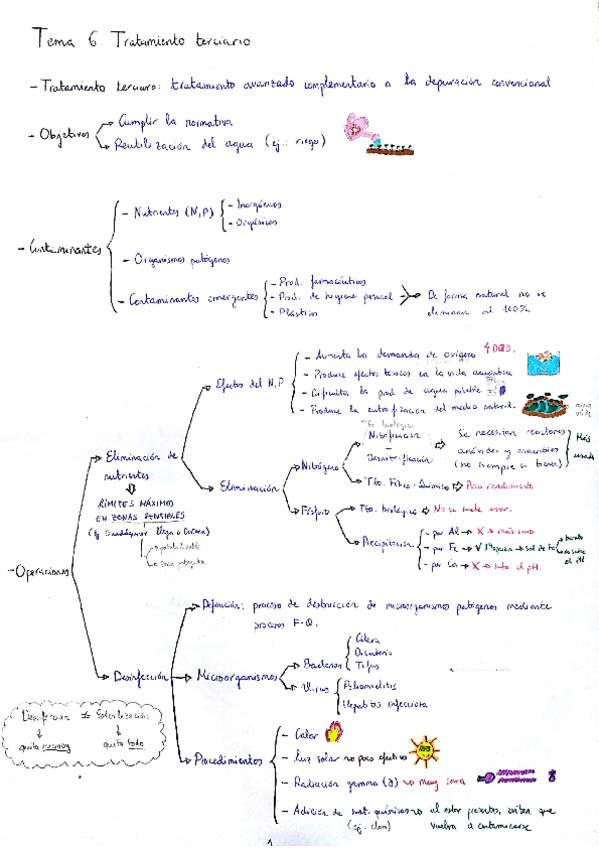 Tema 6. Tratamiento terciario
- Tratamiento terciario: tratamiento avanzado complementario a la depuración convencional
- Objetivos
Cumplir la normativa
Reutilización del agua (ej.: riego)
- Contaminantes
- Nutrientes (N,P)
- Inorgánicos
- Orgánicos
- Organismos patógenos
- Contaminantes emergentes
- Prod. farmacéuticos
- Prod. de higiene personal
- Plástico
De forma natural no se
eliminan al 100%
- Operaciones
Eliminación de
nutrientes
LÍMITES MÁXIMOS
EN ZONAS SENSIBLES
Efectos del N,P
- Aumenta la demanda de oxígeno
- Produce efectos tóxicos en la vida acuática
- Dificulta la prod. de agua potable
- Produce la eutrofización del medio natural.
agua
verde
Eliminación
Nitrógeno
Tto biológico
Nitrificación
Desnitrificación
Se necesitan reactores
anóxicos y anaerobios
(no siempre se tienen)
Más
usado
Tto. Físico-Químico
Poco rendimiento
Fósforo
Tto. biológico
No se suele usar.
Precipitación
- por Al
X
más caro
- por Fe
√
sal de Fe
barato
no sube
el pH
- por Ca
X
sube el pH.
Desinfección
Definición: proceso de destrucción de microorganismos patógenos mediante
procesos F-Q.
Microorganismos
Bacterias
Cólera
Disentería
Tifus
Virus
Poliomelitis
Hepatitis infecciosa
Procedimientos
- Calor
- Luz solar
poco efectivo
- Radiación gamma (γ)
muy cara
- Adición de sust. químicas
(ej. cloro)
al estar presentes, evitan que
vuelva a contaminarse
Desinfección ≠ Esterilización
quita
quita todo
1